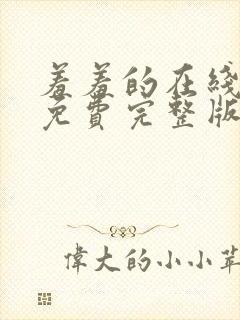 羞羞的在綫
免費完整版
偉大的小小苹